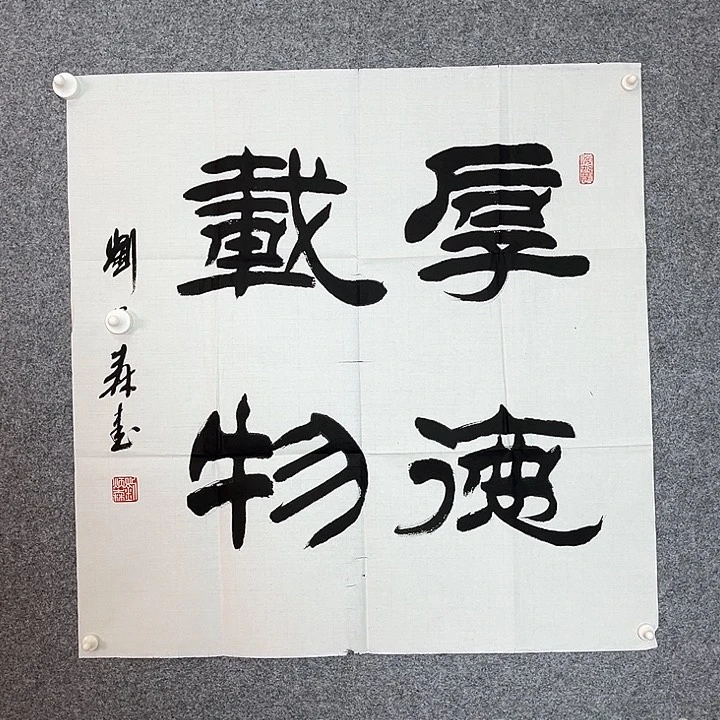 厚德
載物
劉
森書